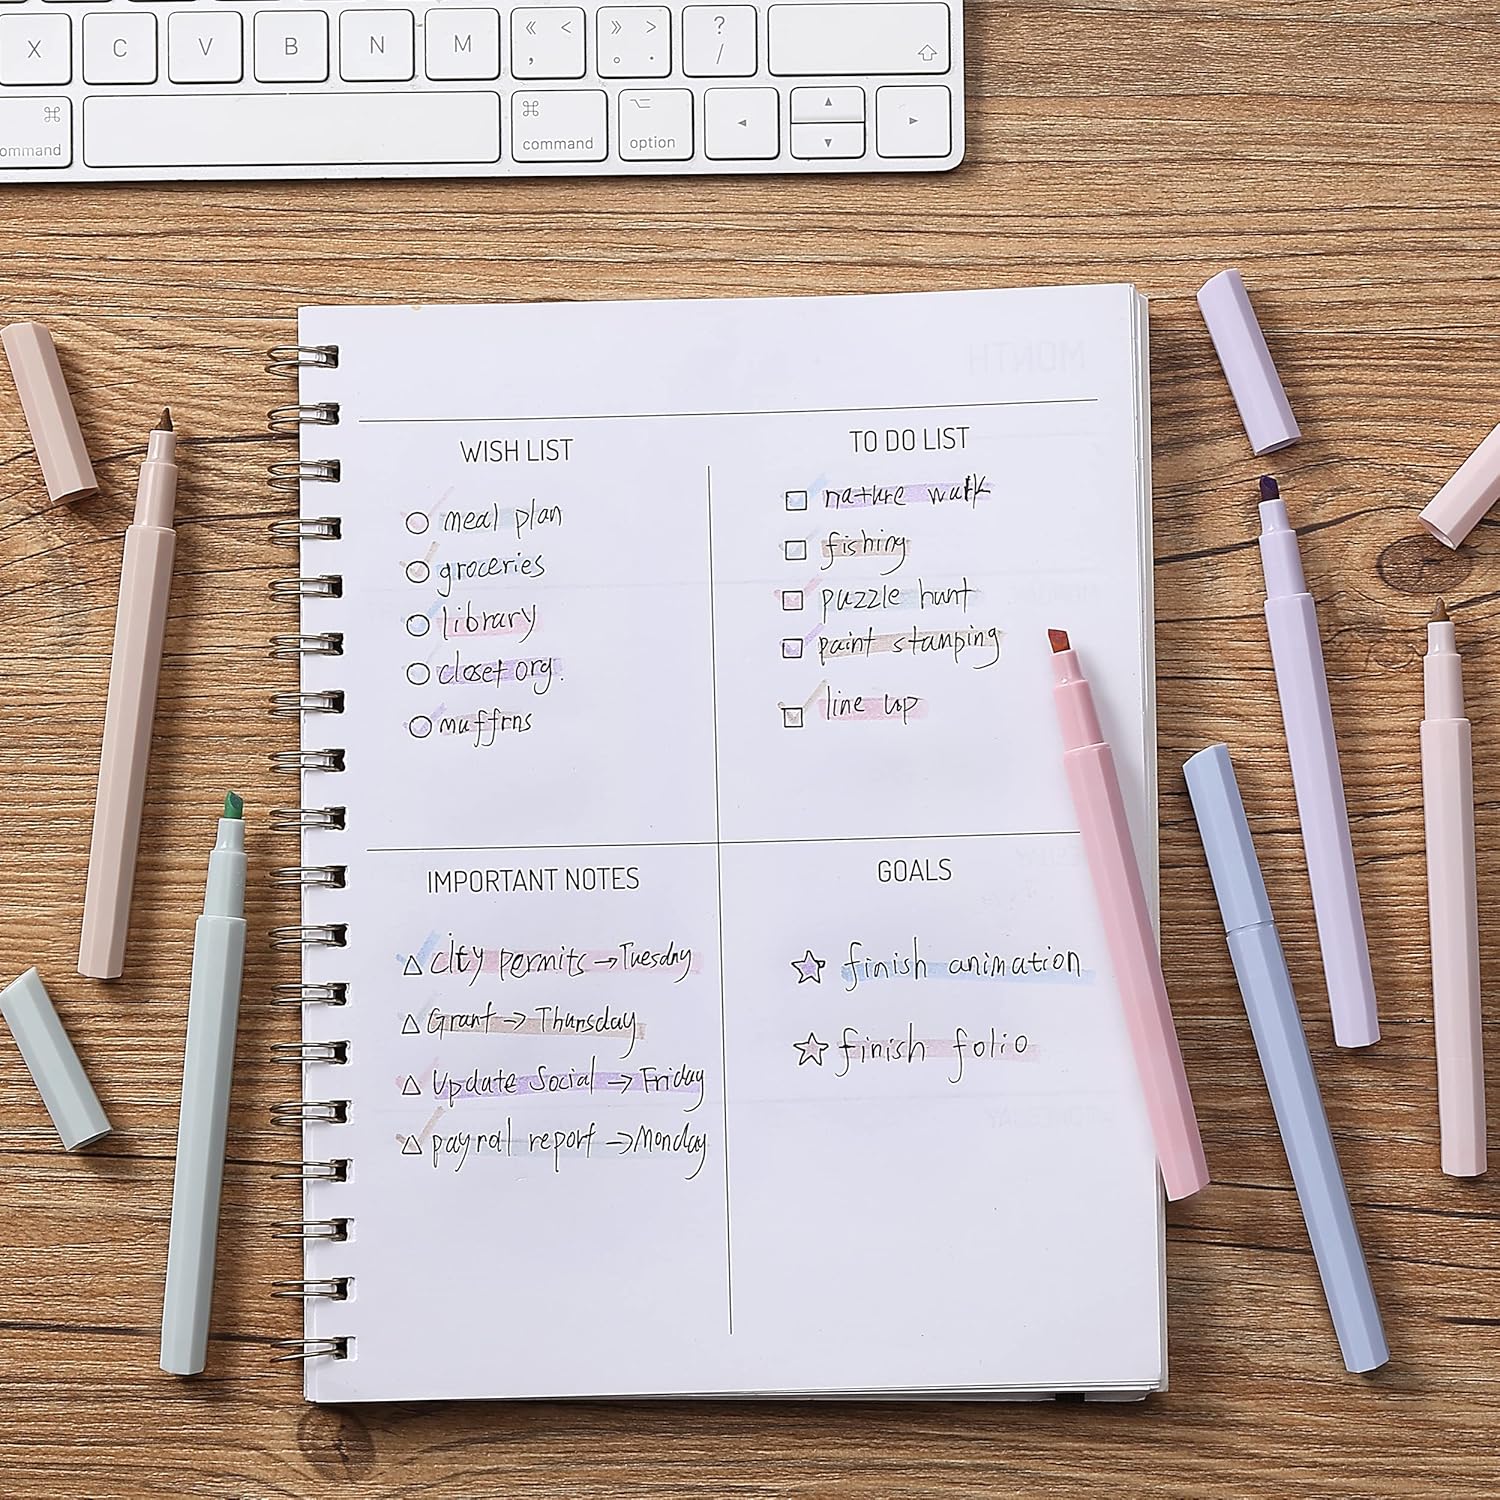 X C V B N M « < , » > 。 . ? /
⌘ command ⌘ command ⌥ option
MONTH
WISH LIST
meal plan
groceries
library
closet org.
muffrns
TO DO LIST
nature walk
fishing
puzzle hunt
paint stamping
line up
IMPORTANT NOTES
city permits → Tuesday
Grant → Thursday
Update Social → Friday
payral report → Monday
GOALS
finish animation
finish folio